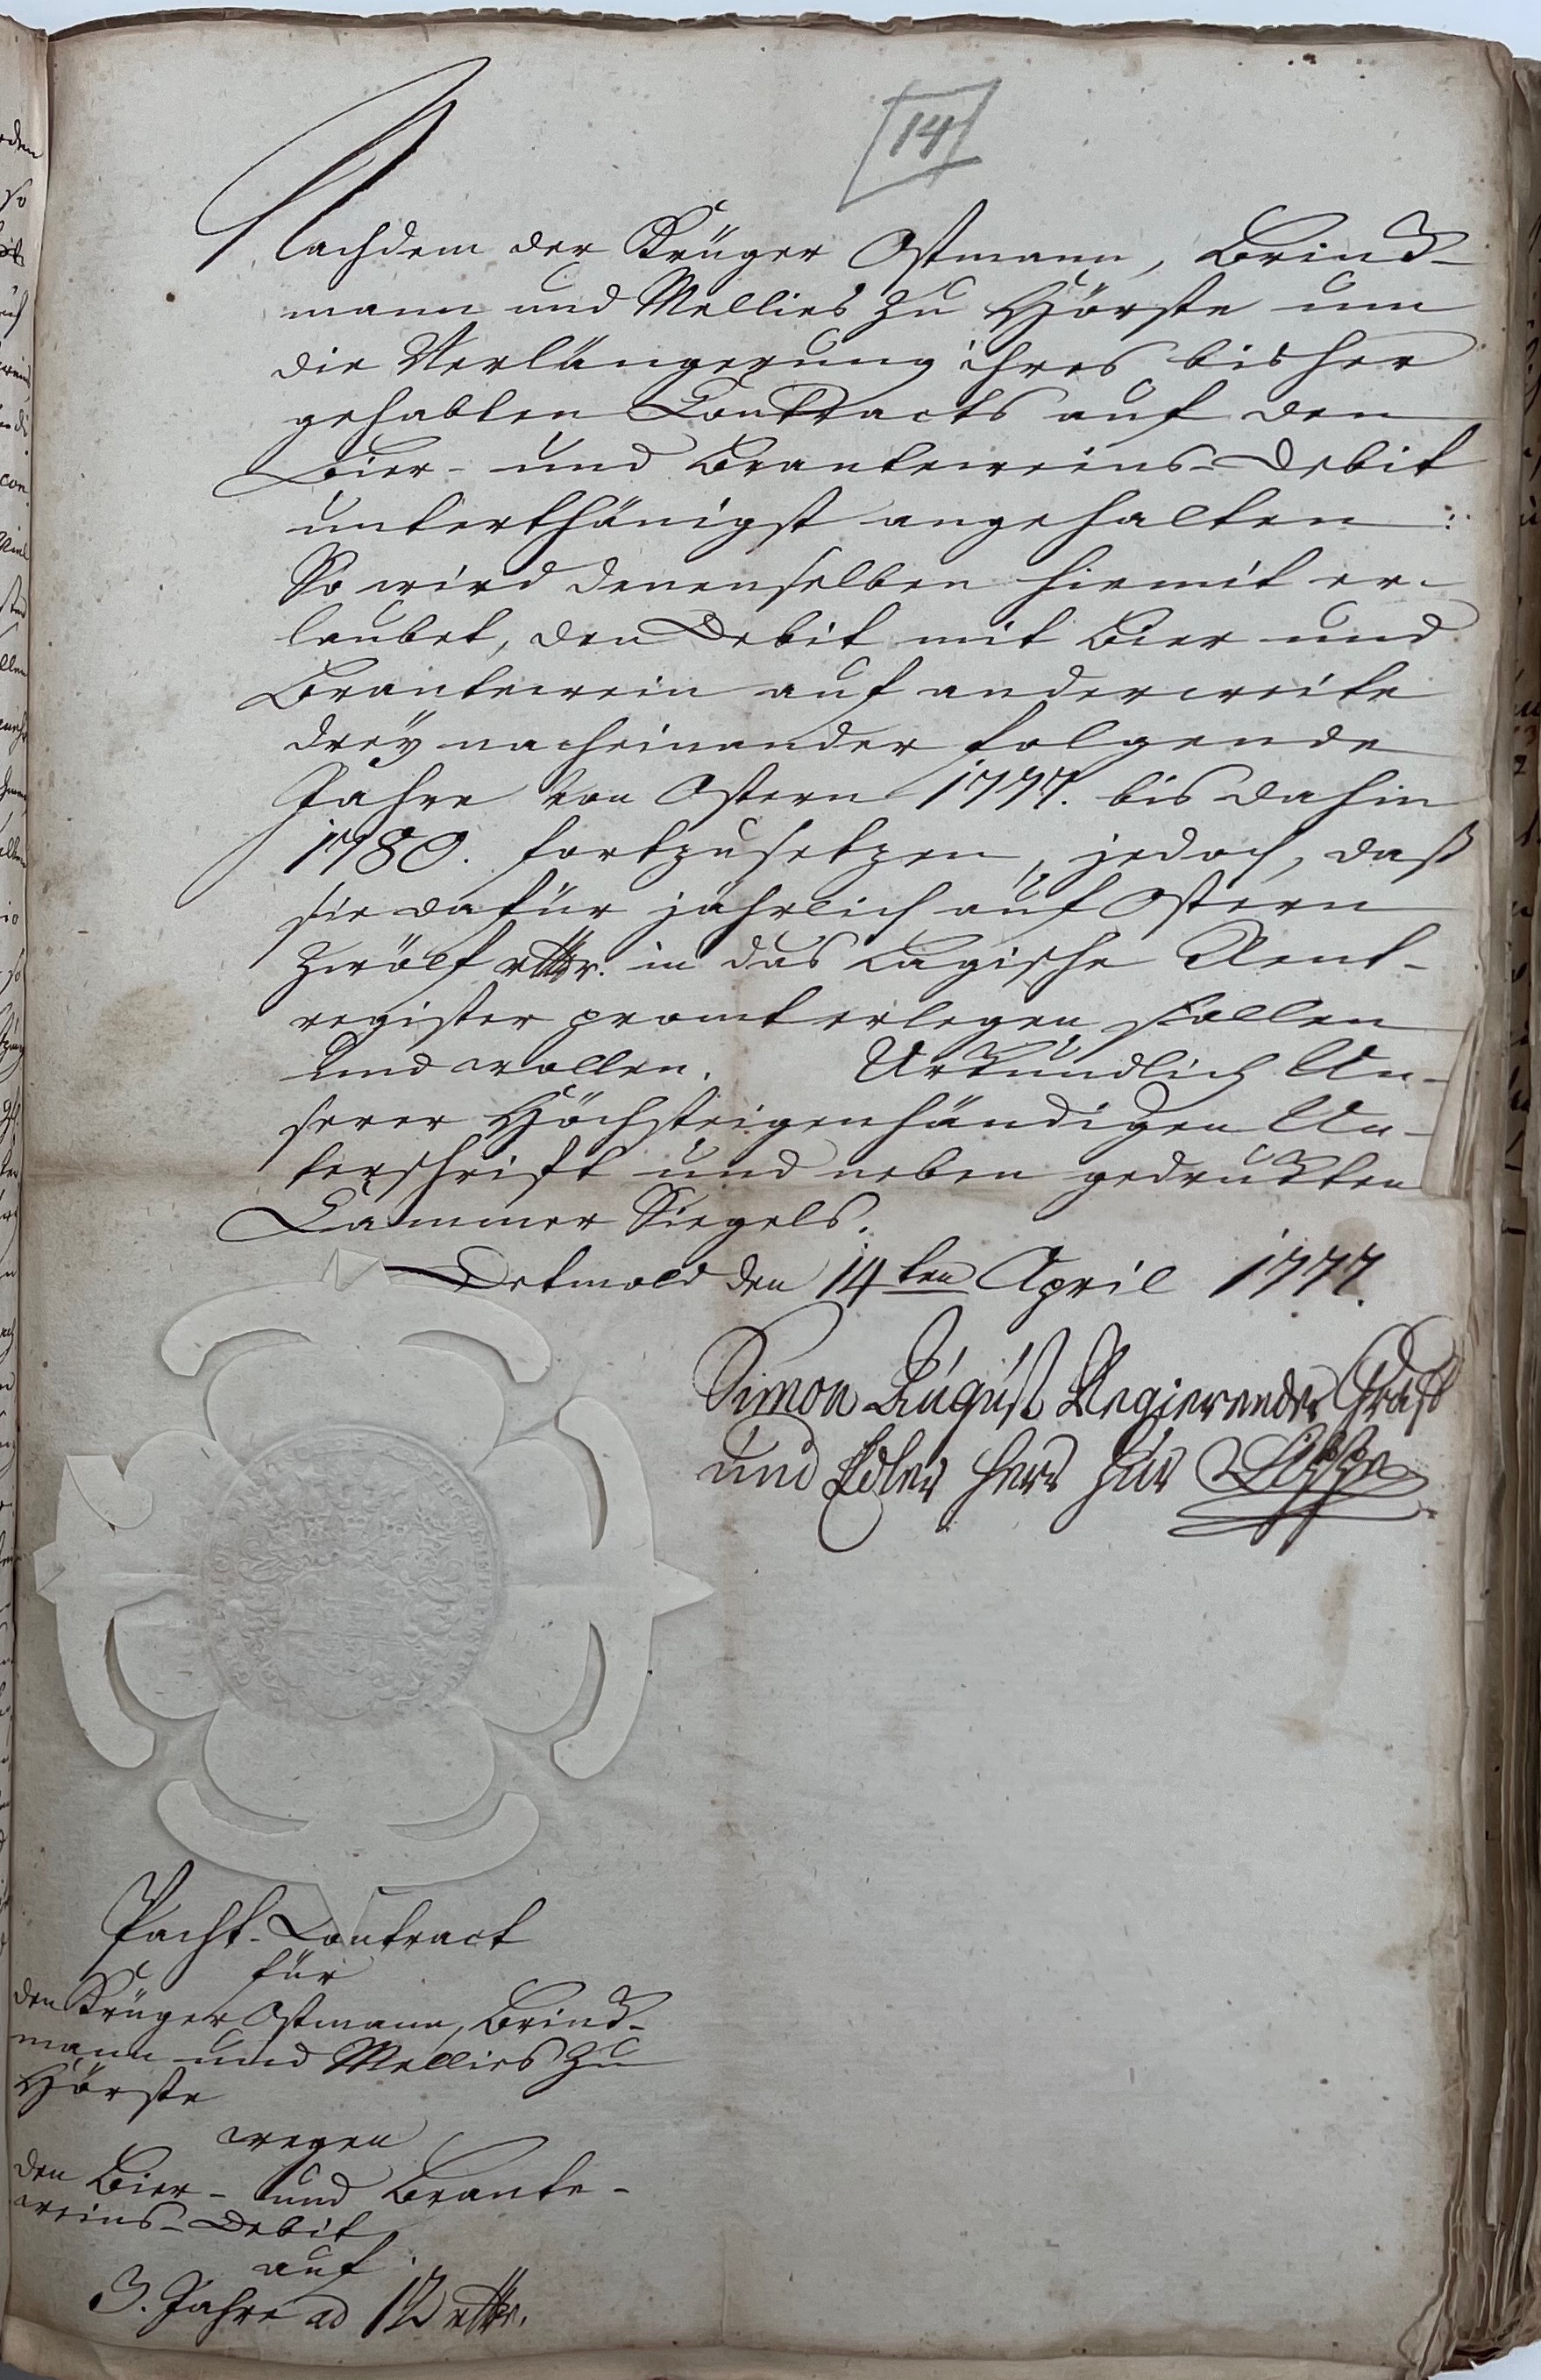 14
Nachdem der Krüger Ostmann, Brink-
mann und Mellies zu Hörste um
die Verlängerung ihres bisher
gehabten Contracts auf den
Bier- und Brantewreins-Debit
unterthänigst angehalten:
So wird denenselben hiemit er-
laubet, den Debit mit Bier und
Brantewein auf anderweite
drey nacheinander folgende
Jahre von Ostern 1777. bis dahin
1780. fortzusetzen, jedoch, daß
sie dafür jährlich auf Ostern
zwölf rthlr. in das Lagische Amt-
register promt erlegen sollen
und wollen. Urkundlich Un-
serer Höchsteigenhändigen Un-
terschrift und neben gedrukten
Cammer Siegels.
Detmold den 14ten April 1777.
Simon August Regierender Graff
und Edler Herr zur Lippe
Pacht-Contract
für
den Krüger Ostmann, Brink-
mann und Mellies zu
Hörste
wegen
den Bier- und Brante-
weins-Debit
auf
3. Jahre ad 12 rthlr.